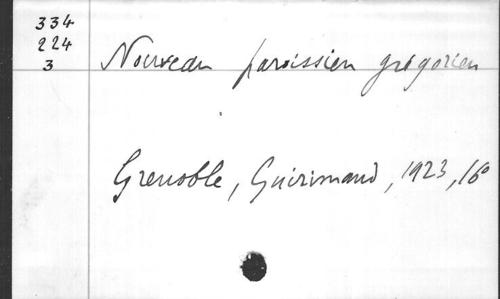 334
224
3
Nouveau paroissien grégorien
Grenoble, Guirimand, 1923, 16°